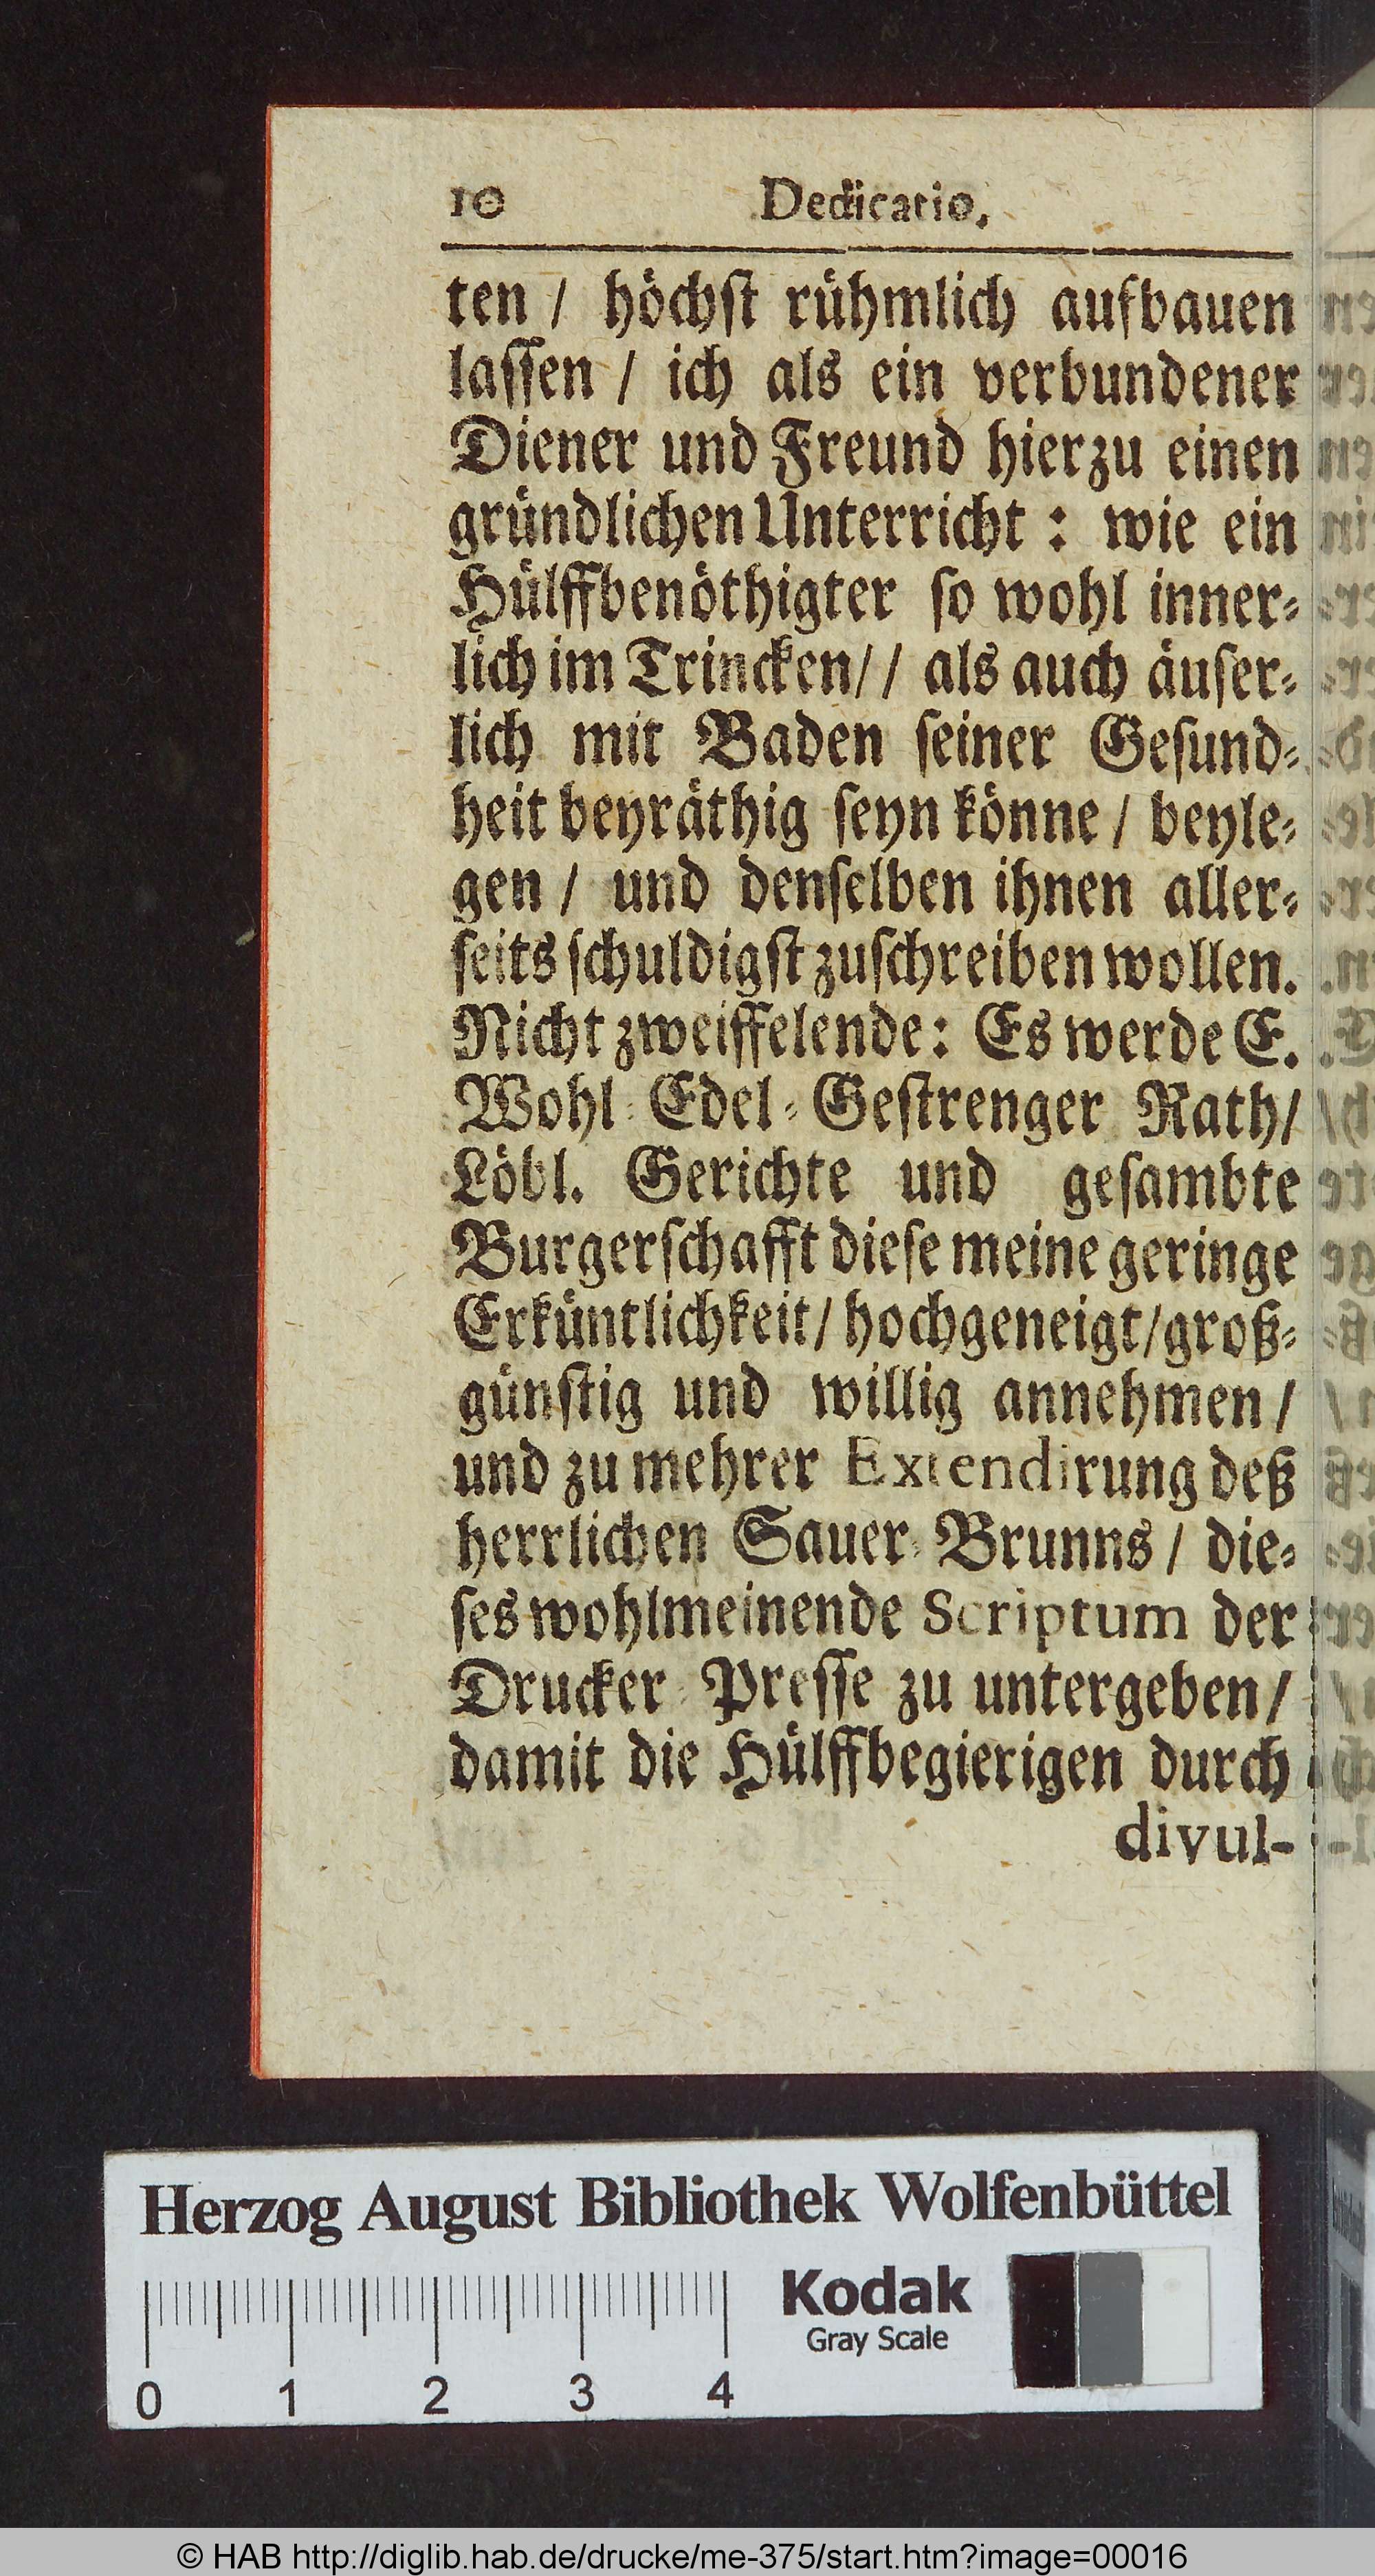 10 Dedicatio.
ten / höchſt rühmlich aufbauen
laſſen / ich als ein verbundener
Diener und Freund hierzu einen
gründlichen Unterricht : wie ein
Hülffbenöthigter ſo wohl inner⸗
lich im Trincken/ / als auch äuſer⸗
lich mit Baden ſeiner Geſund⸗
heit beyräthig ſeyn könne / beyle⸗
gen / und denſelben ihnen aller⸗
ſeits ſchuldigſt zuſchreiben wollen.
Nicht zweiffelende: Es werde E.
Wohl⸗Edel⸗Geſtrenger Rath/
Löbl. Gerichte und geſambte
Burgerſchafft dieſe meine geringe
Erküntlichkeit/ hochgeneigt/groß⸗
günſtig und willig annehmen /
und zu mehrer Extendirung deß
herrlichen Sauer⸗Brunns / die⸗
ſes wohlmeinende Scriptum der
Drucker⸗Preſſe zu untergeben/
damit die Hülffbegierigen durch
divul-
Herzog August Bibliothek Wolfenbüttel
Kodak
Gray Scale
0 1 2 3 4
© HAB http://diglib.hab.de/drucke/me-375/start.htm?image=00016